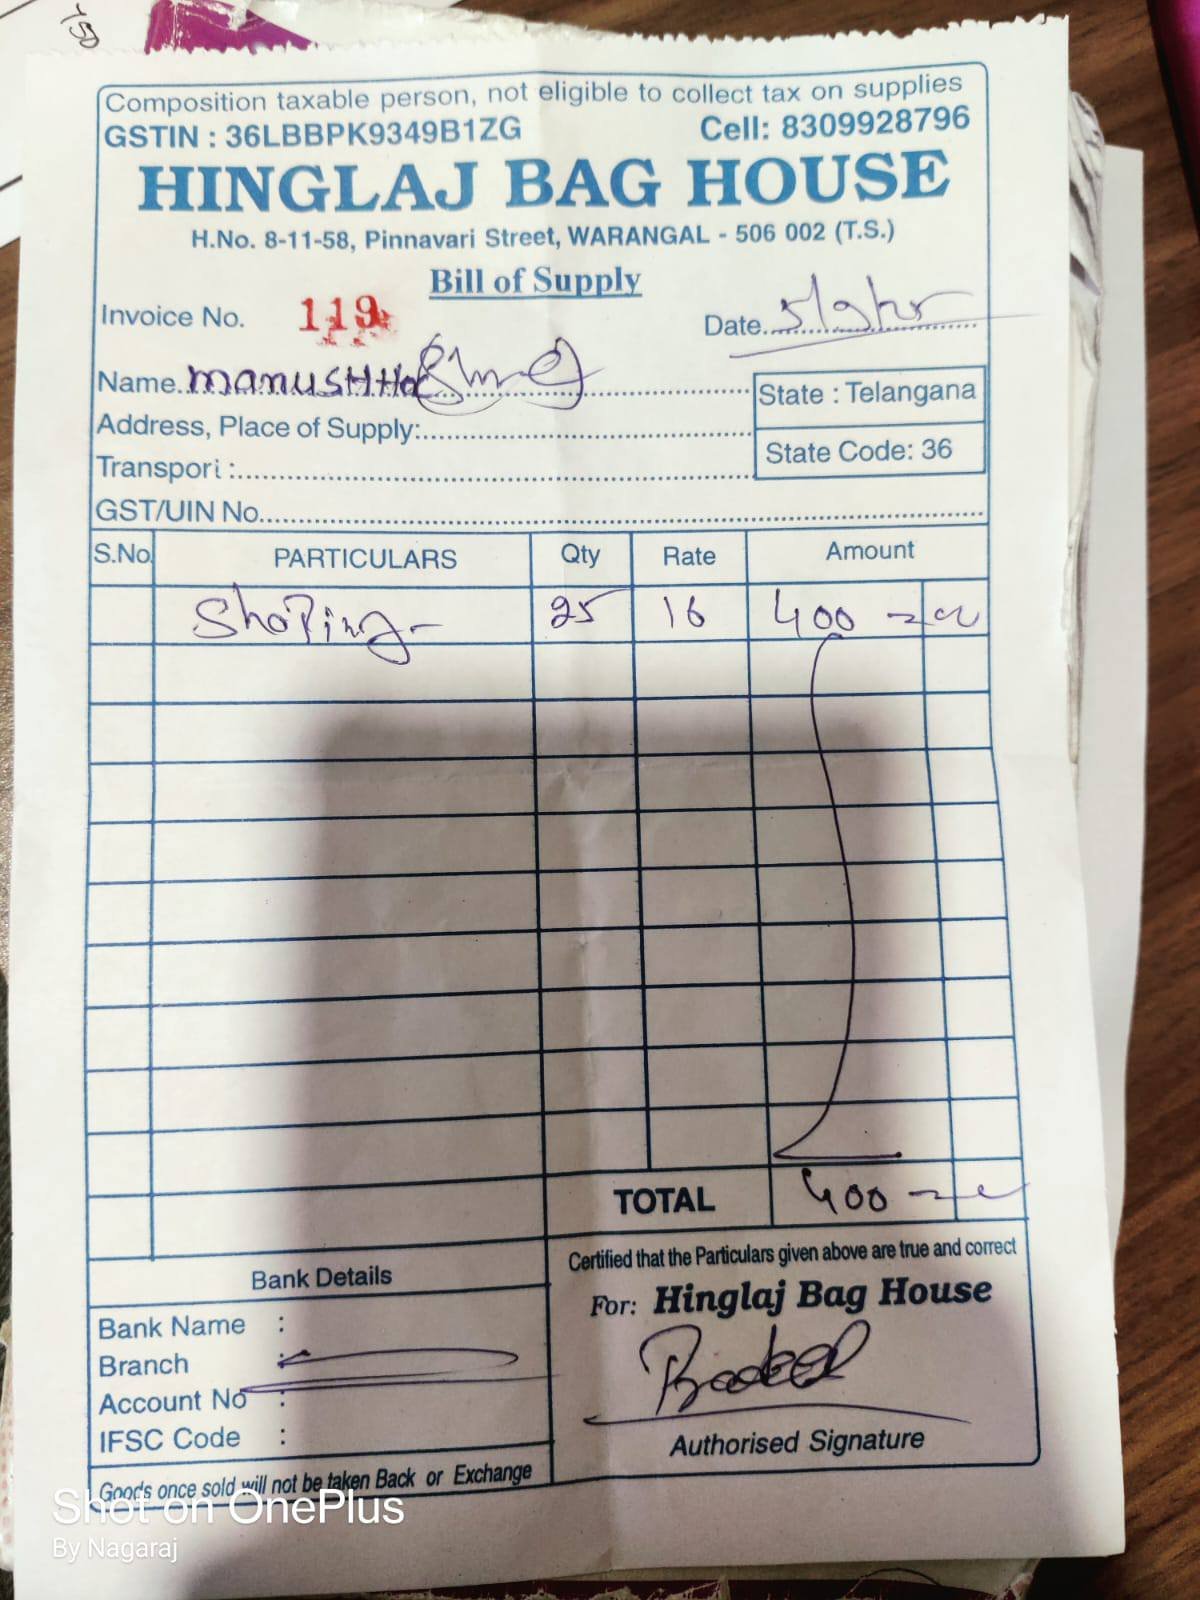 Composition taxable person, not eligible to collect tax on supplies
GSTIN : 36LBBPK9349B1ZG Cell: 8309928796
HINGLAJ BAG HOUSE
H.No. 8-11-58, Pinnavari Street, WARANGAL - 506 002 (T.S.)
Bill of Supply
Invoice No. 119 Date
Name State : Telangana
Address, Place of Supply:
State Code: 36
Transport :
GST/UIN No.
S.No. PARTICULARS Qty Rate Amount
ShoPing - 25 16 400
TOTAL 400
Certified that the Particulars given above are true and correct
Bank Details
For: Hinglaj Bag House
Bank Name :
Branch :
Account No :
IFSC Code :
Authorised Signature
Goods once sold will not be taken Back or Exchange
Shot on OnePlus
By Nagaraj